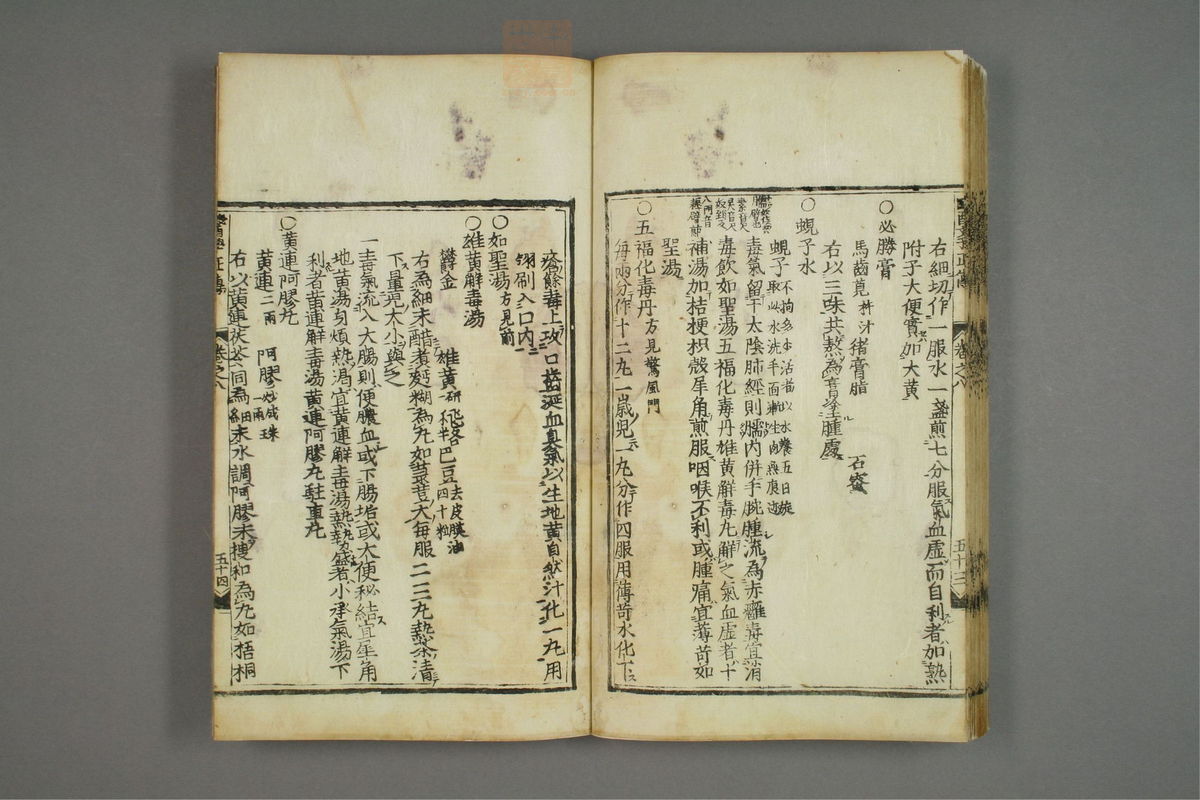 右細切作一服水一盞煎七分服氣血虛而自利者加熟
附子大便實加大黃
○必勝膏
馬齒莧 杵汁 猪膏脂 石蜜
右以三味共熬為膏塗腫處
○蜆子水
蜆子 不拘多少活者以水養五日旋
取此水洗手面漸生肉無痕迹
毒氣留于太陰肺經則臑內併手腕腫流為赤癰毒宜消
毒飲如聖湯五福化毒丹雄黃解毒丸解之氣血虛者十
補湯加桔梗枳殼犀角煎服咽喉不利或腫痛宜薄荷如
聖湯
○五福化毒丹 方見驚風門
每兩分作十二丸一歲兒一丸分作四服用薄荷水化下
五十三
瘡餘毒上攻口齒涎血臭氣以生地黃自然汁化一丸用
翎刷入口內
○如聖湯 方見前
○雄黃解毒湯
鬱金 雄黃 研飛各一不半 巴豆 去皮膜油四十粒
右為細末醋煮麪糊為丸如菉豆大每服二三丸熱茶清
下量兒大小與之
一毒氣流入大腸則便膿血或下腸垢或大便秘結宜犀角
地黃湯身煩熱渴宜黃連解毒湯熱盛者小承氣湯下
利者黃連解毒湯黃連阿膠丸駐車丸
○黃連阿膠丸
黃連 二兩 阿膠 炒成珠一兩
右以黃連茯苓同為細末水調阿膠末搜和為丸如梧桐
卷之八
五十四